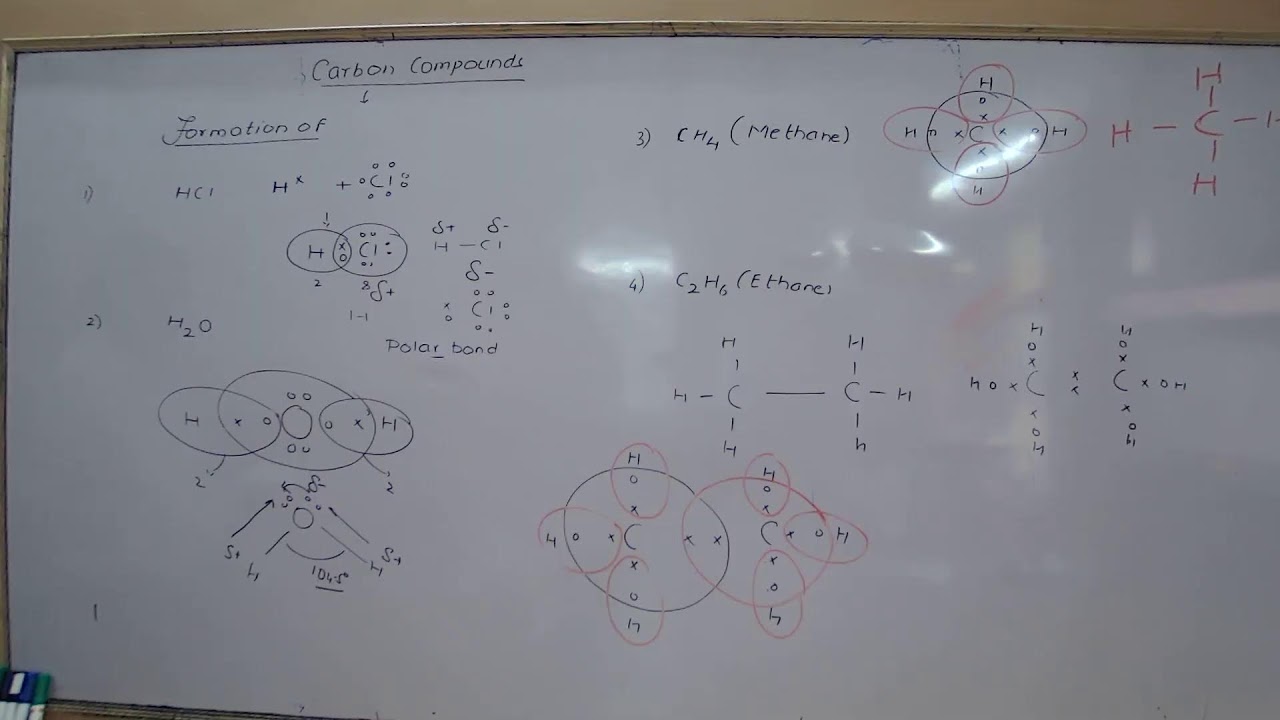 Carbon Compounds
Formation of
1) HCl H + Cl
H Cl
2 8
δ+ δ-
H - Cl
δ+ δ-
H Cl
Polar bond
2) H2O
H O H
2 2
δ-
O
δ+ H H δ+
104.5°
3) CH4 (Methane)
H
H C H
H
H
H - C -
H
4) C2H6 (Ethane)
H H
H - C - C - H
H H
H H
H C C H
H H
H H
H C C H
H H